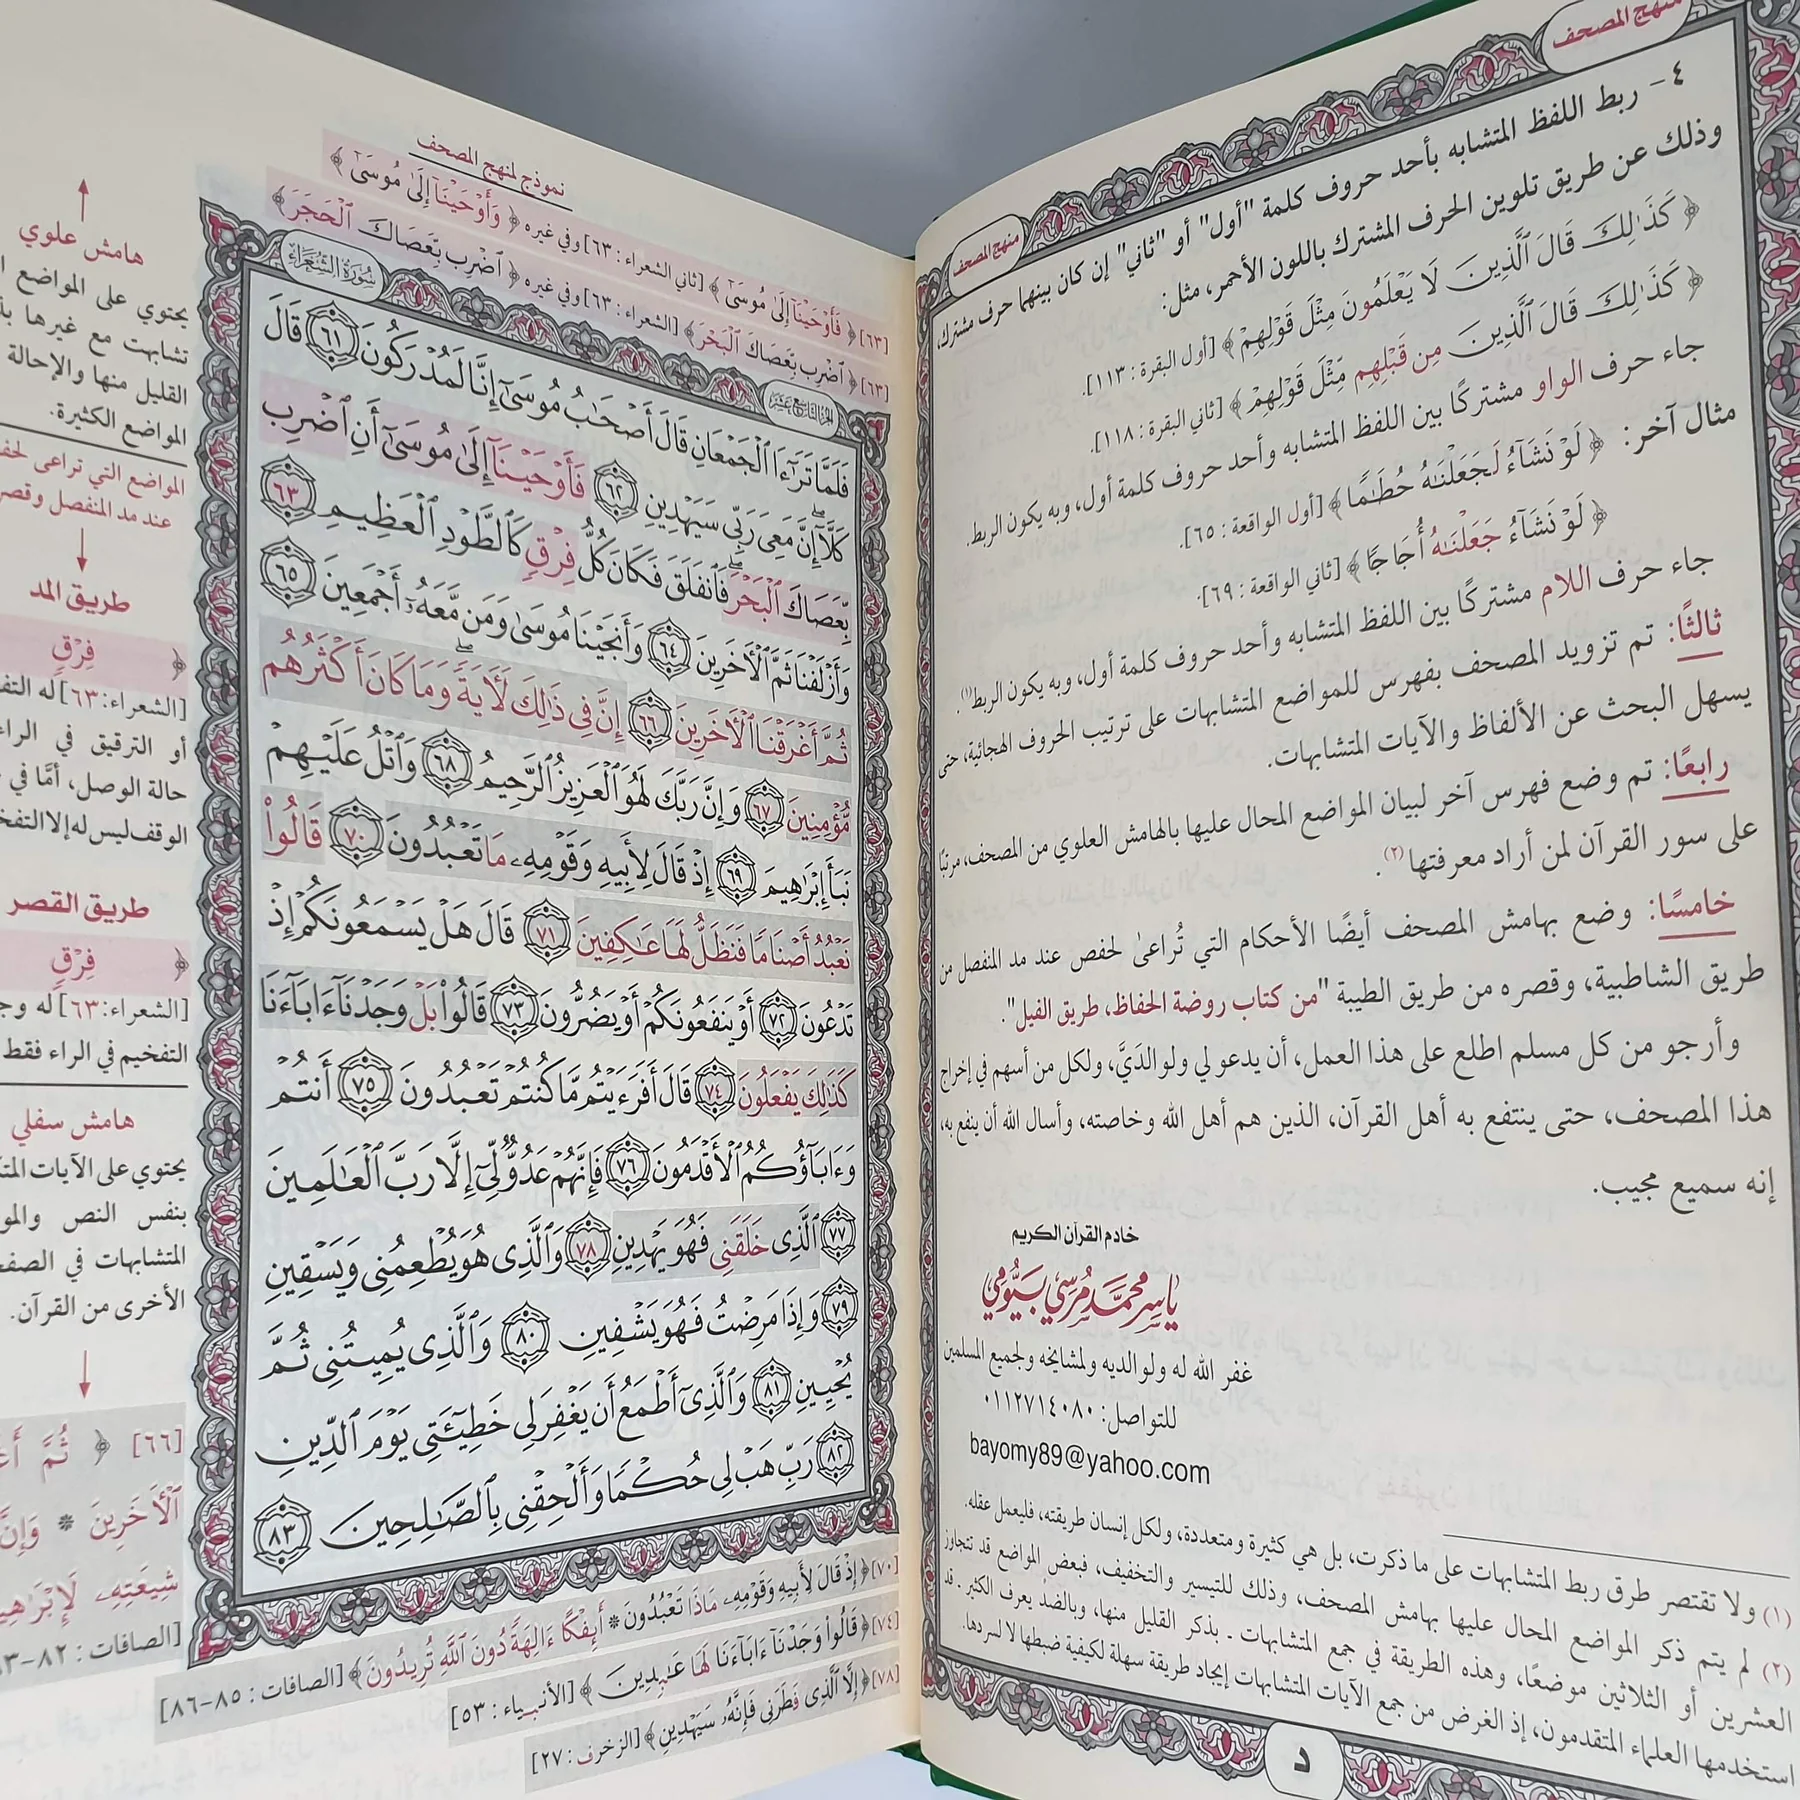 منهج المصحف
منهج المصحف
٤- ربط اللفظ المتشابه بأحد حروف كلمة "أول" أو "ثاني" إن كان بينهما حرف مشترك،
وذلك عن طريق تلوين الحرف المشترك باللون الأحمر، مثل:
﴿ كَذَٰلِكَ قَالَ ٱلَّذِينَ لَا يَعْلَمُونَ مِثْلَ قَوْلِهِمْ ﴾ [أول البقرة : ١١٣].
﴿ كَذَٰلِكَ قَالَ ٱلَّذِينَ مِن قَبْلِهِم مِّثْلَ قَوْلِهِمْ ﴾ [ثاني البقرة : ١١٨].
جاء حرف الواو مشتركًا بين اللفظ المتشابه وأحد حروف كلمة أول، وبه يكون الربط.
مثال آخر: ﴿ لَوْ نَشَآءُ لَجَعَلْنَٰهُ حُطَٰمًا ﴾ [أول الواقعة : ٦٥].
﴿ لَوْ نَشَآءُ جَعَلْنَٰهُ أُجَاجًا ﴾ [ثاني الواقعة : ٦٩].
جاء حرف اللام مشتركًا بين اللفظ المتشابه وأحد حروف كلمة أول، وبه يكون الربط(١).
ثالثًا: تم تزويد المصحف بفهرس للمواضع المتشابهات على ترتيب الحروف الهجائية، حتى
يسهل البحث عن الألفاظ والآيات المتشابهات.
رابعًا: تم وضع فهرس آخر لبيان المواضع المحال عليها بالهامش العلوي من المصحف، مرتبًا
على سور القرآن لمن أراد معرفتها(٢).
خامسًا: وضع بهامش المصحف أيضًا الأحكام التي تُراعىٰ لحفص عند مد المنفصل من
طريق الشاطبية، وقصره من طريق الطيبة "من كتاب روضة الحفاظ، طريق الفيل".
وأرجو من كل مسلم اطلع على هذا العمل، أن يدعو لي ولوالدَيَّ، ولكل من أسهم في إخراج
هذا المصحف، حتى ينتفع به أهل القرآن، الذين هم أهل الله وخاصته، وأسال الله أن ينفع به،
إنه سميع مجيب.
خادم القرآن الكريم
ياسر محمد مرسي بيومي
غفر الله له ولوالديه ولمشايخه ولجميع المسلمين
للتواصل: ٠١١٢٧١٤٠٨٠
bayomy89@yahoo.com
(١) ولا تقتصر طرق ربط المتشابهات على ما ذكرت، بل هي كثيرة ومتعددة، ولكل إنسان طريقته، فليعمل عقله.
(٢) لم يتم ذكر المواضع المحال عليها بهامش المصحف، وذلك للتيسير والتخفيف، فبعض المواضع قد تتجاوز
العشرين أو الثلاثين موضعًا، وهذه الطريقة في جمع المتشابهات ـ بذكر القليل منها، وبالضد يعرف الكثير ـ قد
استخدمها العلماء المتقدمون، إذ الغرض من جمع الآيات المتشابهات إيجاد طريقة سهلة لكيفية ضبطها لا لسردها.
د
نموذج لمنهج المصحف
[٦٣] ﴿ فَأَوْحَيْنَآ إِلَىٰ مُوسَىٰٓ ﴾ [ثاني الشعراء : ٦٣] وفي غيره ﴿ وَأَوْحَيْنَآ إِلَىٰ مُوسَىٰٓ ﴾
[٦٣] ﴿ ٱضْرِب بِّعَصَاكَ ٱلْبَحْرَ ﴾ [الشعراء : ٦٣] وفي غيره ﴿ ٱضْرِب بِّعَصَاكَ ٱلْحَجَرَ ﴾
الجزء التاسع عشر
سورة الشعراء
فَلَمَّا تَرَٰٓءَا ٱلْجَمْعَانِ قَالَ أَصْحَٰبُ مُوسَىٰٓ إِنَّا لَمُدْرَكُونَ ٦١ قَالَ
كَلَّآ إِنَّ مَعِىَ رَبِّى سَيَهْدِينِ ٦٢ فَأَوْحَيْنَآ إِلَىٰ مُوسَىٰٓ أَنِ ٱضْرِب
بِّعَصَاكَ ٱلْبَحْرَ فَٱنفَلَقَ فَكَانَ كُلُّ فِرْقٍ كَٱلطَّوْدِ ٱلْعَظِيمِ ٦٣
وَأَزْلَفْنَا ثَمَّ ٱلْأَخَرِينَ ٦٤ وَأَنجَيْنَا مُوسَىٰ وَمَن مَّعَهُۥٓ أَجْمَعِينَ ٦٥
ثُمَّ أَغْرَقْنَا ٱلْأَخَرِينَ ٦٦ إِنَّ فِى ذَٰلِكَ لَأَيَةً وَمَا كَانَ أَكْثَرُهُم
مُّؤْمِنِينَ ٦٧ وَإِنَّ رَبَّكَ لَهُوَ ٱلْعَزِيزُ ٱلرَّحِيمُ ٦٨ وَٱتْلُ عَلَيْهِمْ
نَبَأَ إِبْرَٰهِيمَ ٦٩ إِذْ قَالَ لِأَبِيهِ وَقَوْمِهِۦ مَا تَعْبُدُونَ ٧٠ قَالُوا۟
نَعْبُدُ أَصْنَامًا فَنَظَلُّ لَهَا عَٰكِفِينَ ٧١ قَالَ هَلْ يَسْمَعُونَكُمْ إِذْ
تَدْعُونَ ٧٢ أَوْ يَنفَعُونَكُمْ أَوْ يَضُرُّونَ ٧٣ قَالُوا۟ بَلْ وَجَدْنَآ ءَابَآءَنَا
كَذَٰلِكَ يَفْعَلُونَ ٧٤ قَالَ أَفَرَءَيْتُم مَّا كُنتُمْ تَعْبُدُونَ ٧٥ أَنتُمْ
وَءَابَآؤُكُمُ ٱلْأَقْدَمُونَ ٧٦ فَإِنَّهُمْ عَدُوٌّ لِّىٓ إِلَّا رَبَّ ٱلْعَٰلَمِينَ
٧٧ ٱلَّذِى خَلَقَنِى فَهُوَ يَهْدِينِ ٧٨ وَٱلَّذِى هُوَ يُطْعِمُنِى وَيَسْقِينِ
٧٩ وَإِذَا مَرِضْتُ فَهُوَ يَشْفِينِ ٨٠ وَٱلَّذِى يُمِيتُنِى ثُمَّ
يُحْيِينِ ٨١ وَٱلَّذِىٓ أَطْمَعُ أَن يَغْفِرَ لِى خَطِيٓـَٔتِى يَوْمَ ٱلدِّينِ
٨٢ رَبِّ هَبْ لِى حُكْمًا وَأَلْحِقْنِى بِٱلصَّٰلِحِينَ ٨٣
[٧٠] ﴿ إِذْ قَالَ لِأَبِيهِ وَقَوْمِهِۦ مَاذَا تَعْبُدُونَ * أَئِفْكًا ءَالِهَةً دُونَ ٱللَّهِ تُرِيدُونَ ﴾ [الصافات : ٨٥-٨٦]
[٧٤] ﴿ قَالُوا۟ وَجَدْنَآ ءَابَآءَنَا لَهَا عَٰبِدِينَ ﴾ [الأنبياء : ٥٣]
[٧٨] ﴿ إِلَّا ٱلَّذِى فَطَرَنِى فَإِنَّهُۥ سَيَهْدِينِ ﴾ [الزخرف : ٢٧]
هامش علوي
يحتوي على المواضع
تشابهت مع غيرها
القليل منها والإحالة
المواضع الكثيرة.
المواضع التي تراعى
عند مد المنفصل
طريق المد
﴿ فِرْقٍ
[الشعراء: ٦٣] له
أو الترقيق في
حالة الوصل، أمَّا في
الوقف ليس له إلا
طريق القصر
﴿ فِرْقٍ
[الشعراء: ٦٣] له
التفخيم في الراء فقط
هامش سفلي
يحتوي على الآيات
بنفس النص
المتشابهات في
الأخرى من القرآن.
[٦٦] ﴿ ثُمَّ
ٱلْأَخَرِينَ * وَإِنَّ
شِيعَتِهِۦ
[الصافات : ٨٢-